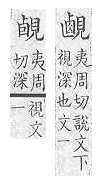 夷周切說文下
視深也文一
夷周視文
切深一